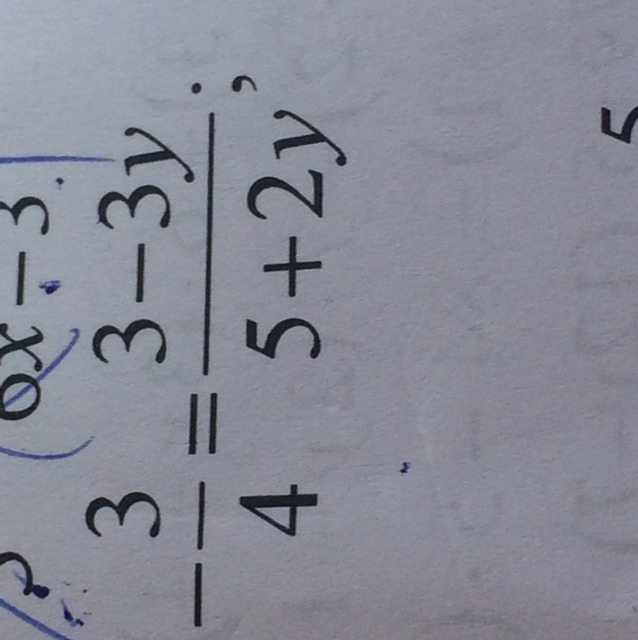 6x − 3
−3/4 = (3 − 3y)/(5 + 2y);
5